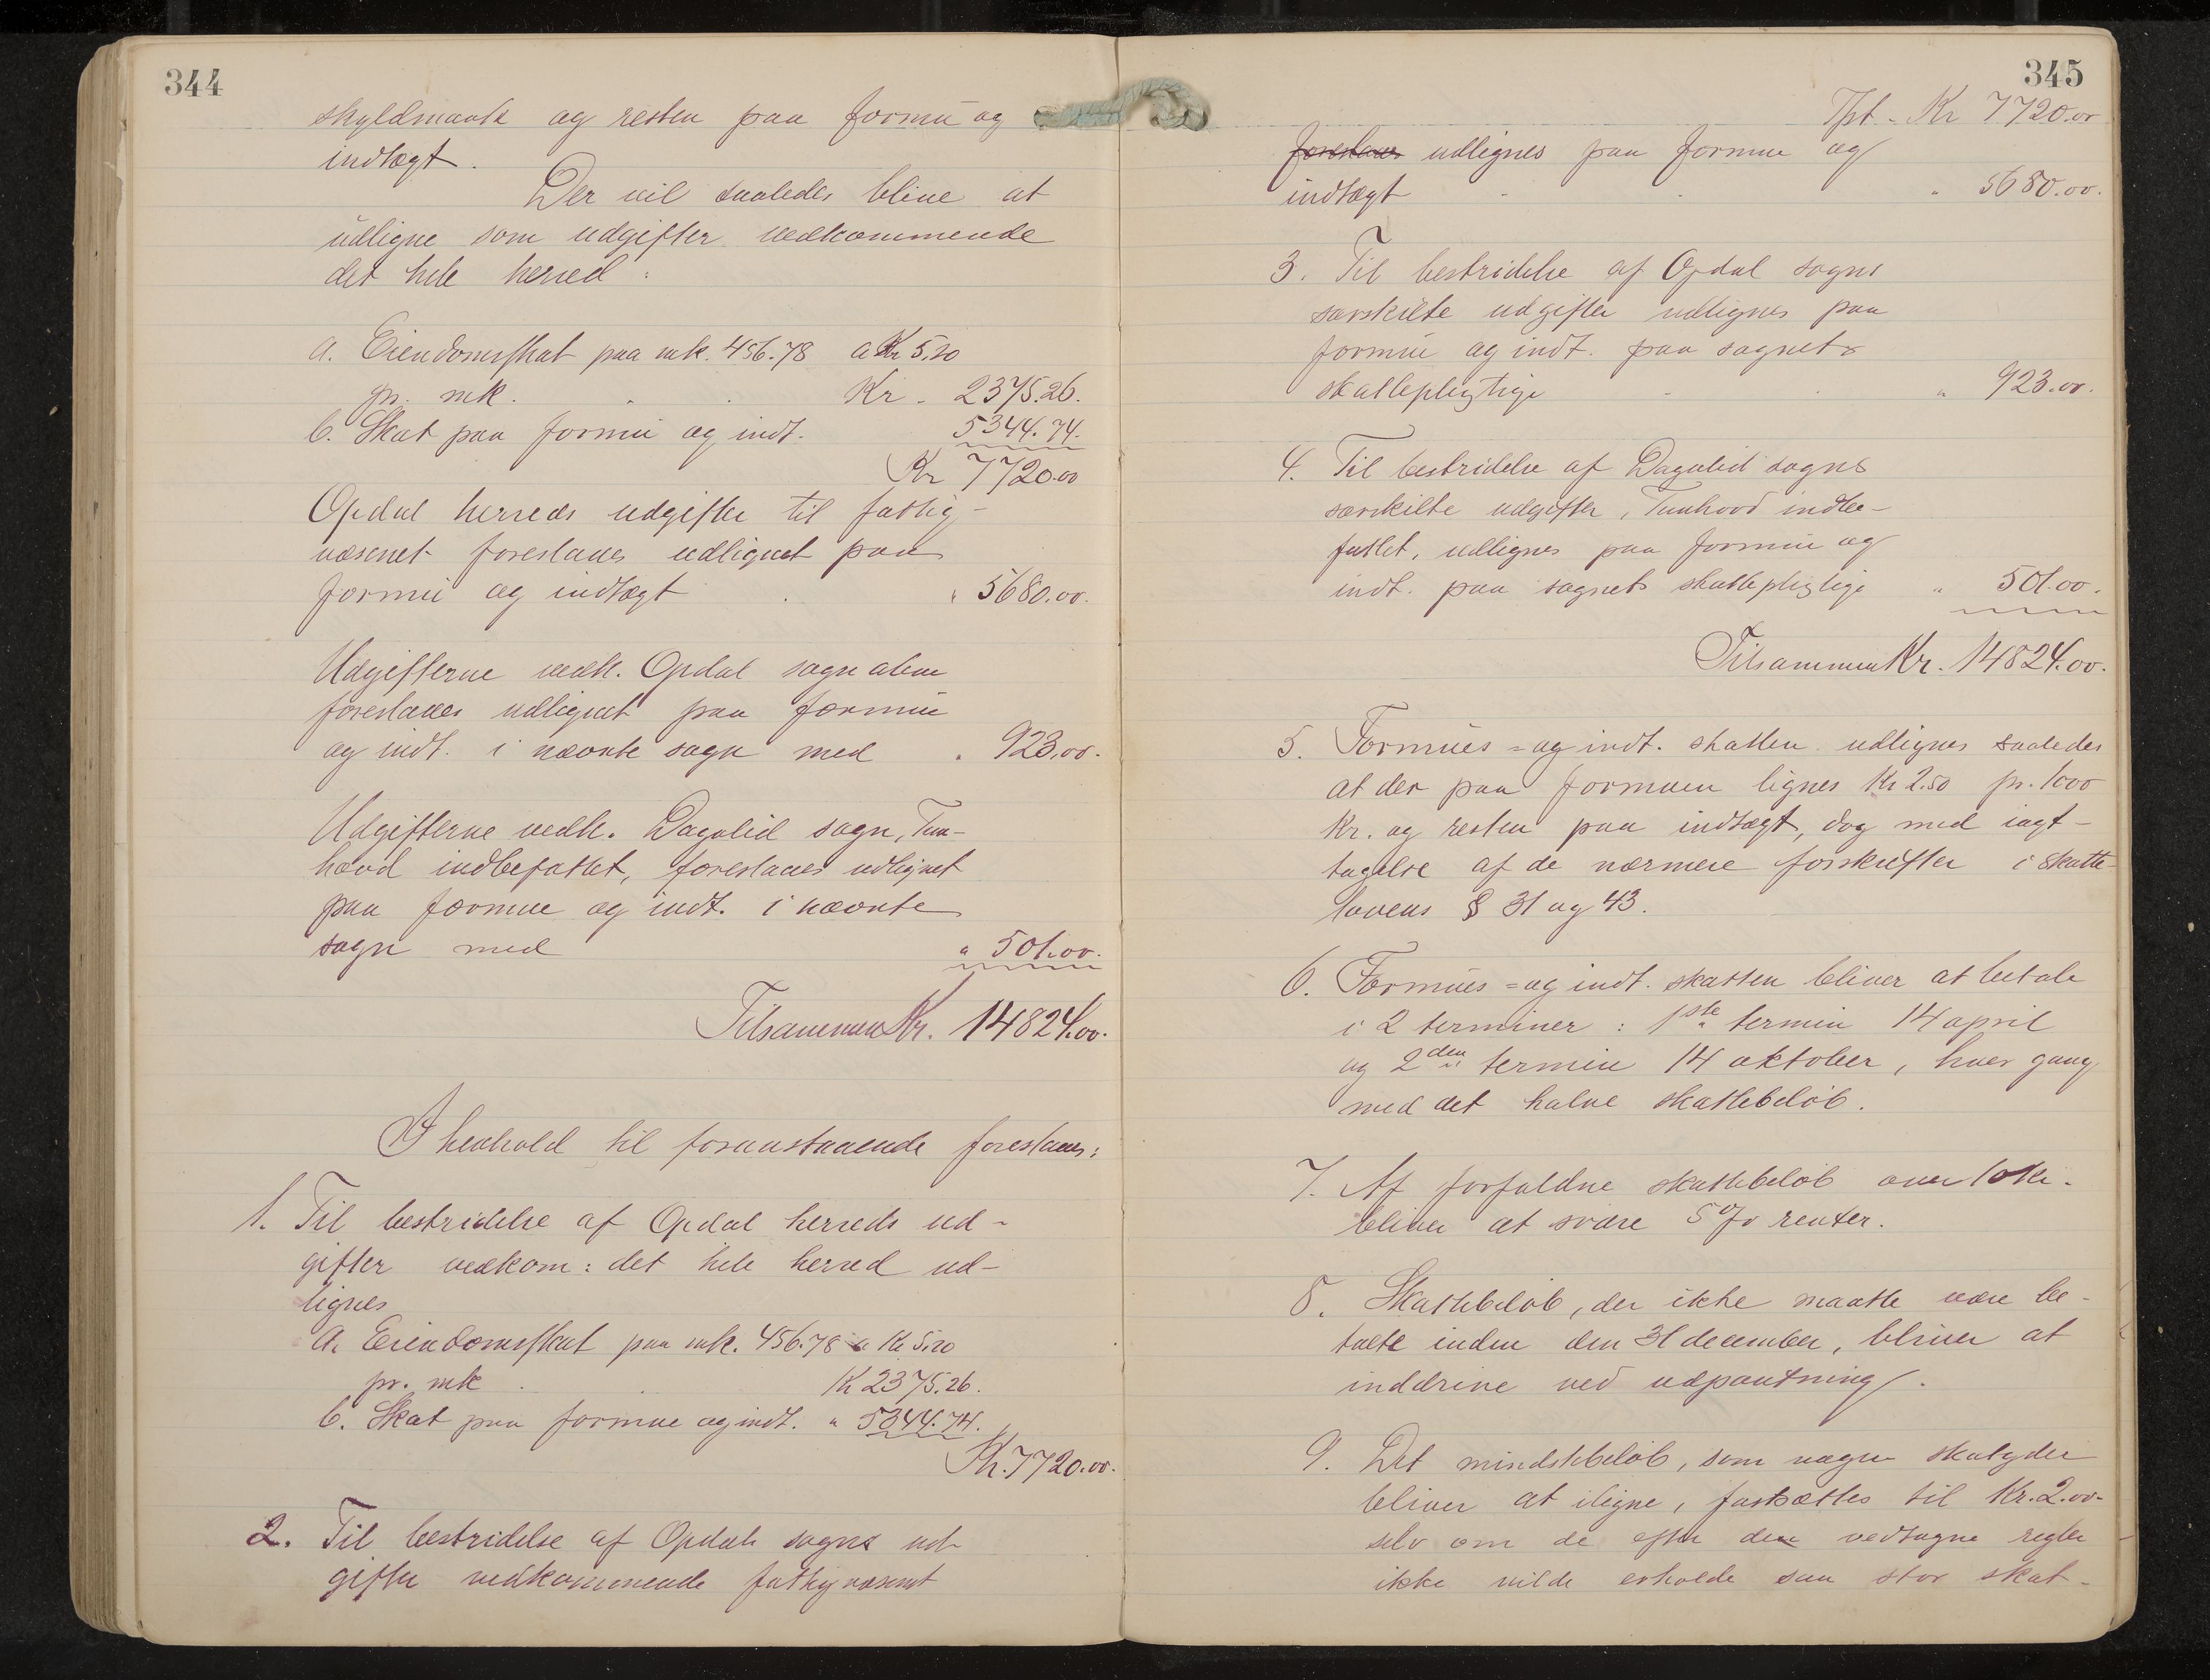 344
skyldmark og resten paa formue og
indtægt.
Der vil saaledes blive at
udligne som udgifter vedkommende
det hele herred:
a. Eiendomsskat paa mk. 456.78 a Kr 5,20
pr. mk. Kr. 2375.26.
b. Skat paa formue og indt. 5344.74.
Kr 7720.00
Opdal herreds udgifter til fattig-
væsenet foreslaaes udlignet paa
formue og indtægt " 5680.00.
Udgifterne vedk. Opdal sogn alene
foreslaaes udlignet paa formue
og indt. i nævnte sogn med " 923.00.
Udgifterne vedk. Dagalid sogn, Tun-
hovd indbefattet, foreslaaes udlignet
paa formue og indt. i nævnte
sogn med " 501.00.
Tilsammen Kr. 14824.00.
I henhold til foranstaaende foreslaaes:
1. Til bestridelse af Opdal herreds ud-
gifter vedkom: det hele herred ud-
lignes
a. Eiendomsskat paa mk. 456.78 a Kr 5.20
pr. mk. Kr 2375.26.
b. Skat paa formue og indt. " 5344.74.
Kr. 7720.00.
2. Til bestridelse af Opdals sogns ud-
gifter vedkommende fattigvæsenet
345
Tpt. Kr 7720.00
foreslaaes udlignes paa formue og
indtægt " 5680.00.
3. Til bestridelse af Opdal sogns
særskilte udgifter udlignes paa
formue og indt. paa sognets
skattepligtige " 923.00.
4. Til bestridelse af Dagalid sogns
særskilte udgifter, Tunhovd indbe-
fattet, udlignes paa formue og
indt. paa sognets skattepligtige " 501.00.
Tilsammen Kr. 14824.00.
5. Formues- og indt. skatten udlignes saaledes
at der paa formuen lignes Kr 2.50 pr. 1000
Kr. og resten paa indtægt, dog med iagt-
tagelse af de nærmere forskrifter i skatte-
lovens § 31 og 43.
6. Formues- og indt. skatten bliver at betale
i 2 terminer: 1ste termin 14 april
og 2den termin 14 oktober, hver gang
med det halve skattebeløb.
7. Af forfaldne skattebeløb over 10 kr.
bliver at svare 5 % renter.
8. Skattebeløb, der ikke maatte være be-
talte inden den 31 december, bliver at
inddrive ved udpantning.
9. Det mindstebeløb, som nogen skatyder
bliver at iligne, fastsættes til Kr. 2.00-
selv om de efter den vedtagne regler
ikke vilde erholde saa stor skat-